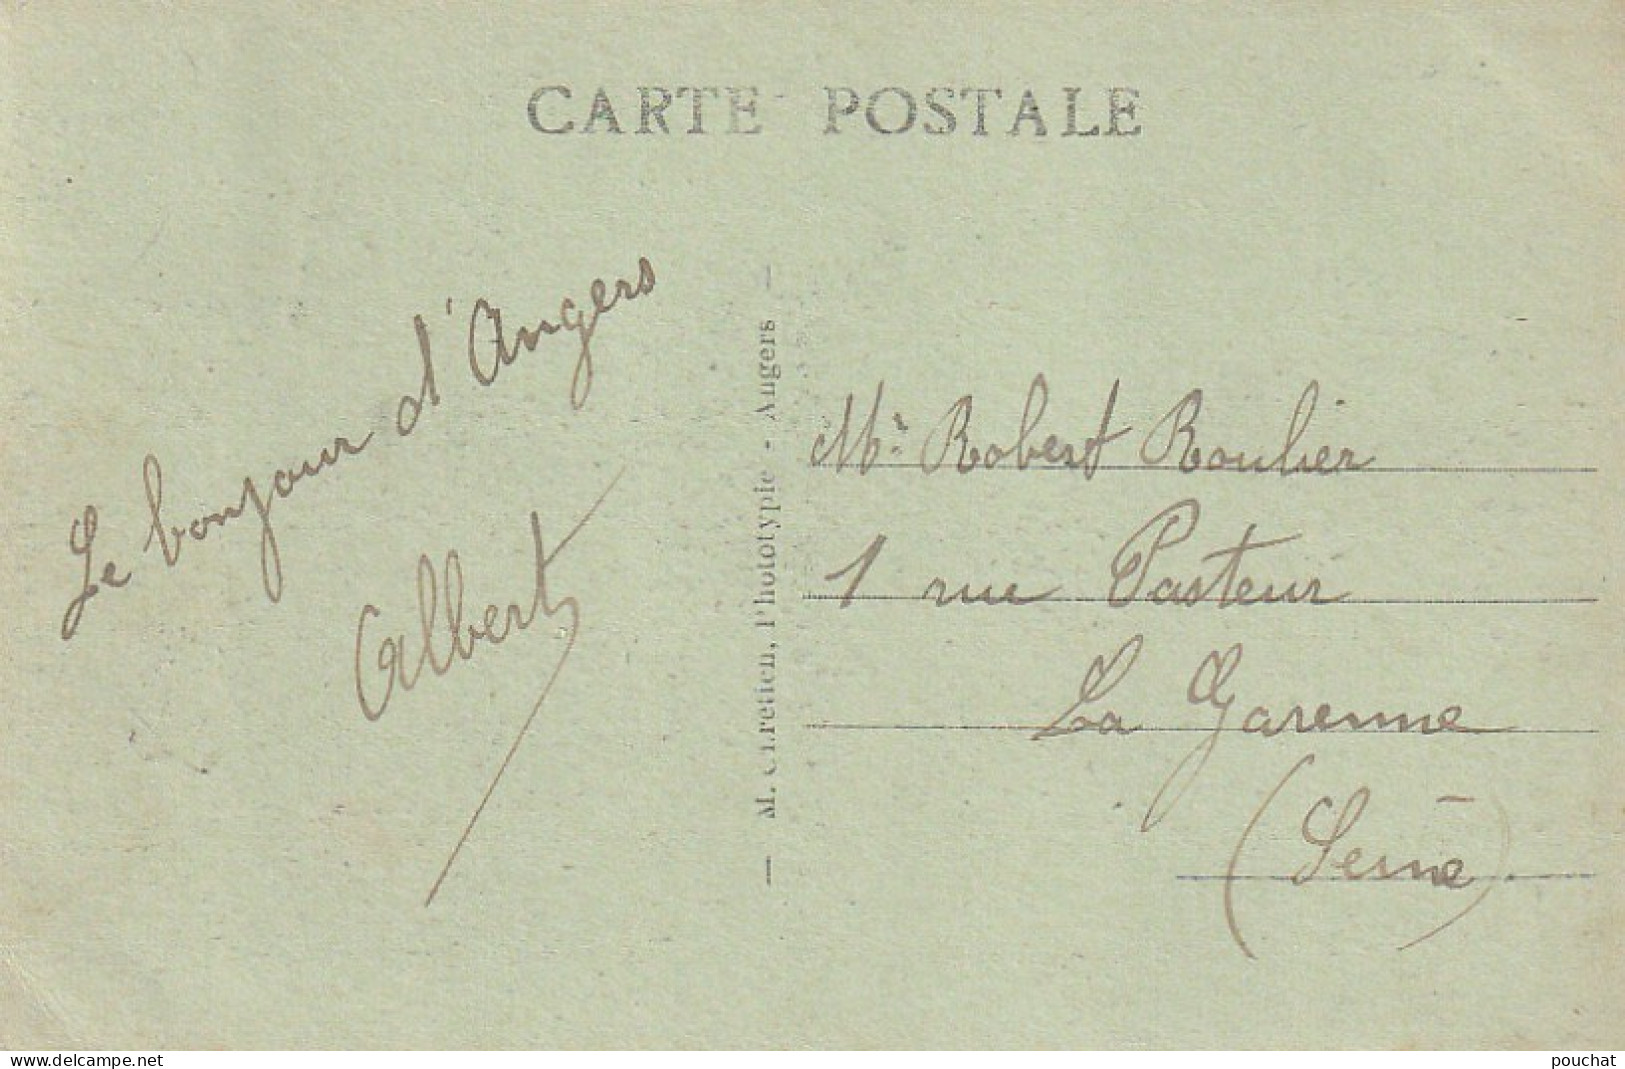 CARTE POSTALE
Le bonjour d'Angers
Albert
— M. Chretien, Phototypie - Angers —
Mr Robert Roulier
1 rue Pasteur
La Garenne
(Seine).
www.delcampe.net
pouchat